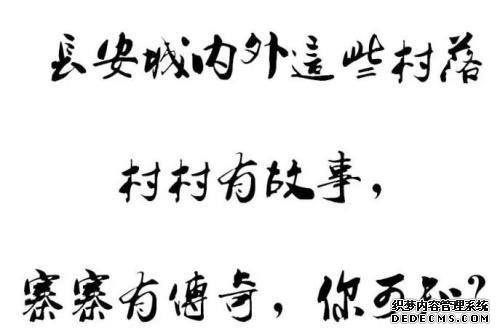 長安城内外這些村落
村村有故事，
寨寨有傳奇，你可知?
织梦内容管理系统
DEDECMS.COM